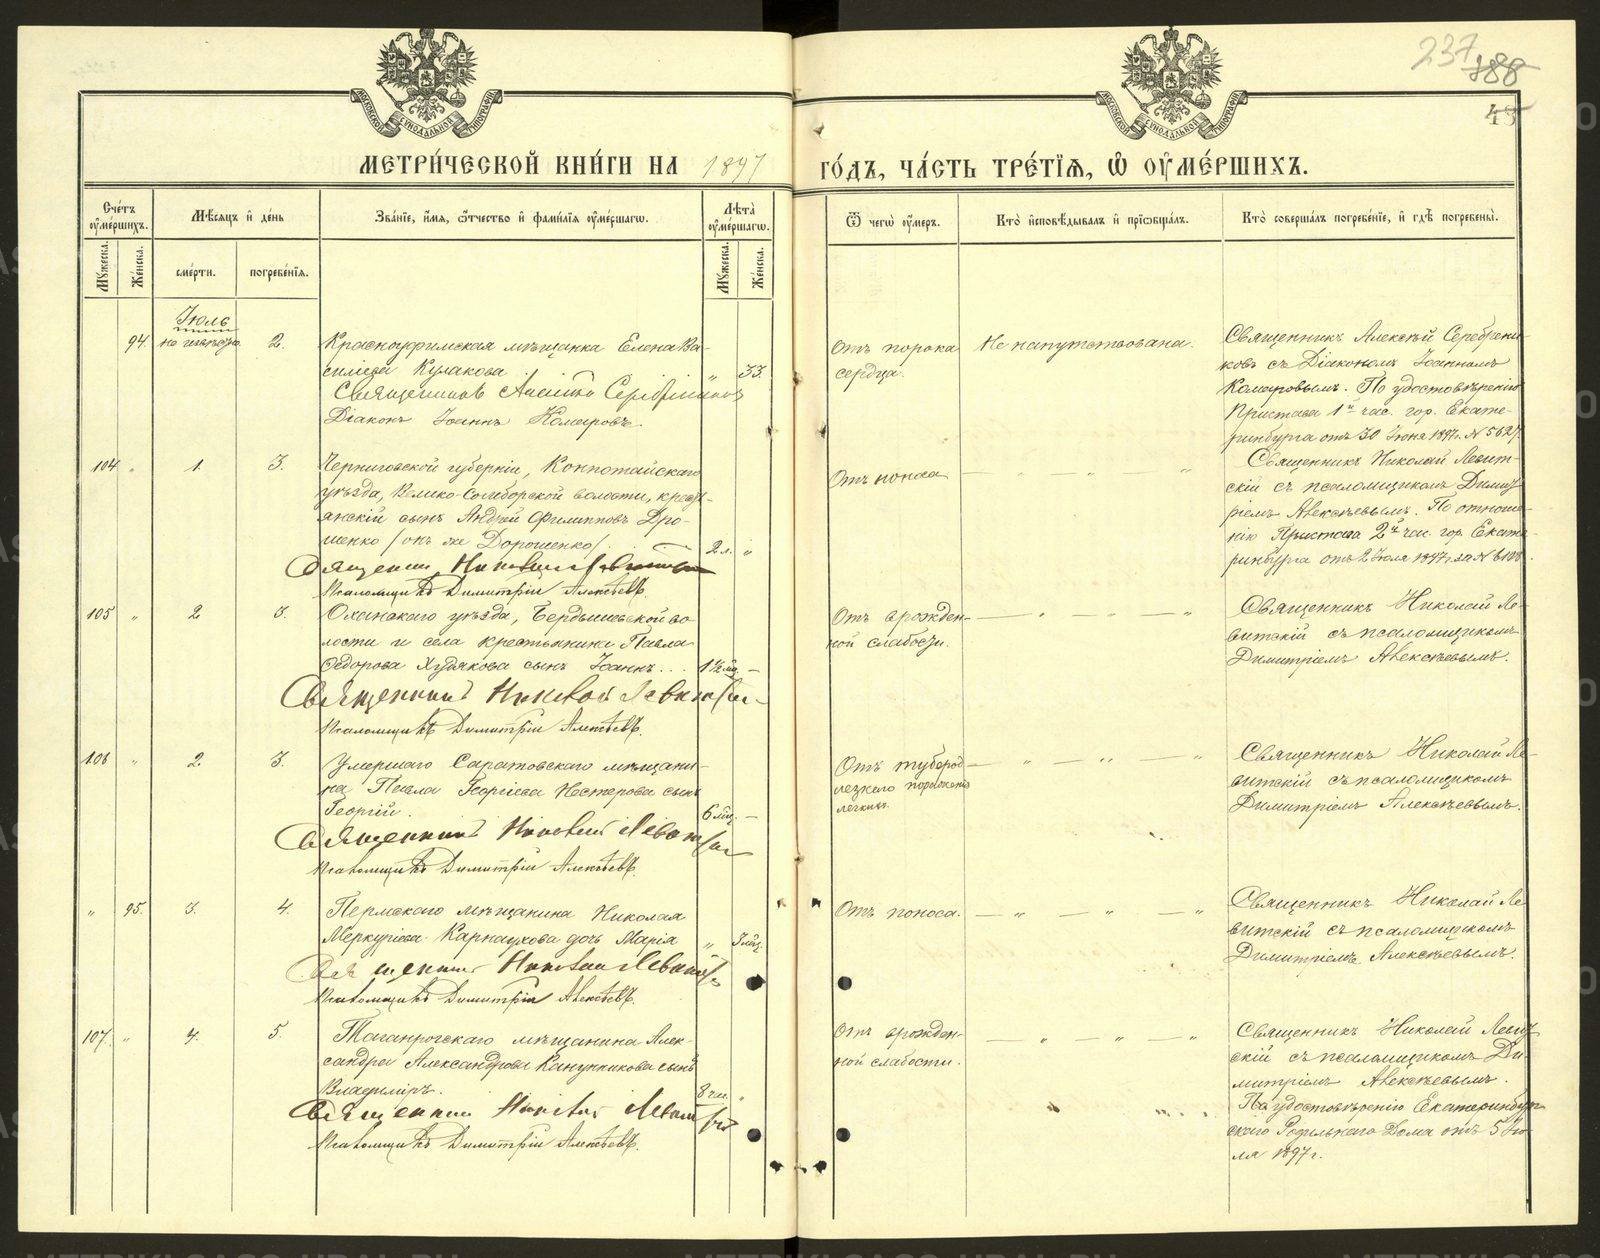 237
188
45
МОСКОВСКОЙ СѴНОДАЛЬНОЙ ТИПОГРАФІИ
МОСКОВСКОЙ СѴНОДАЛЬНОЙ ТИПОГРАФІИ
МЕТРИ́ЧЕСКОЙ КНИ́ГИ НА 1897
ГО́ДЪ, ЧА́СТЬ ТРЕ́ТІѦ, Ѽ ОУ҆МЕ́РШИХЪ.
Сче́тъ оу҆ме́ршихъ.
Мѣ́сѧцъ и҆ де́нь
Зва́нїе, и҆́мѧ, ѻ҆́тчество и҆ фами́лїѧ оу҆ме́ршагѡ.
Лѣ́та оу҆ме́ршагѡ.
Ѿ чегѡ̀ оу҆́меръ.
Кто̀ и҆сповѣ́дывалъ и҆ прїѡбща́лъ.
Кто̀ соверша́лъ погребе́нїе, и҆ гдѣ̀ погребены̀.
Мꙋ́жеска.
Же́нска.
сме́рти.
погребе́нїѧ.
Мꙋ́жеска.
Же́нска.
Іюль
94. не извѣстно. 2. Красноуфимская мѣщанка Елена Ва-
сильева Кулакова „ 33.
Священникъ Алексѣй Серебренниковъ
Діаконъ Іоаннъ Комаровъ.
Отъ порока
сердца.
Не напутствована.
Священникъ Алексѣй Серебрени-
ковъ съ Діакономъ Іоанномъ
Комаровымъ. По удостовѣренію
Пристава 1й час. гор. Екате-
ринбурга отъ 30 Іюня 1897г. № 5627.
104 „ 1. 3. Черниговской губерніи, Конотопскаго
уѣзда, Велико-Самборской волости, кресть-
янскій сынъ Андрей Филипповъ Дро-
шенко (онъ же Дорошенко). 2 л. „
Священникъ Николай Левитскій
Псаломщикъ Димитрій Алексѣевъ.
Отъ поноса — „ „
Священникъ Николай Левит-
скій съ псаломщикомъ Димит-
ріемъ Алексѣевымъ. По отноше-
нію Пристава 2й час. гор. Екате-
ринбурга отъ 2 Іюля 1897г. за №
105 „ 2 3. Оханскаго уѣзда, Бердышевской во-
лости и села крестьянина Павла
Ѳедорова Худякова сынъ Іоаннъ... 1½ мѣс. —
Священникъ Николай Левитскій
Псаломщикъ Димитрій Алексѣевъ.
Отъ врожден-
ной слабости.
— „ — „ — „
Священникъ Николай Ле-
витскій съ псаломщикомъ
Димитріемъ Алексѣевымъ.
106 „ 2 3. Умершаго Саратовскаго мѣщани-
на Павла Георгіева Нестерова сынъ
Георгій. 6 мѣс. —
Священникъ Николай Левитскій
Псаломщикъ Димитрій Алексѣевъ.
Отъ
пораженія
легкихъ.
— „ — „ — „
Священникъ Николай Ле-
витскій съ псаломщикомъ
Димитріемъ Алексѣевымъ.
„ 95. 3. 4. Пермскаго мѣщанина Николая
Меркуріева Карнаухова дочь Марія „ 3 мѣс.
Священникъ Николай Левитскій
Псаломщикъ Димитрій Алексѣевъ.
Отъ поноса. — „ — „ — „
Священникъ Николай Ле-
витскій съ псаломщикомъ
Димитріемъ Алексѣевымъ.
107. „ 4. 5. Таганрогскаго мѣщанина Алек-
сандра Александрова сынъ
Владиміръ. 8 час. „
Священникъ Николай Левитскій
Псаломщикъ Димитрій Алексѣевъ.
Отъ врожден-
ной слабости.
— „ — „ — „
Священникъ Николай Левит-
скій съ псаломщикомъ Ди-
митріемъ Алексѣевымъ.
По удостовѣренію Екатеринбург-
скаго Родильнаго Дома отъ 5 Ію-
ля 1897 г.